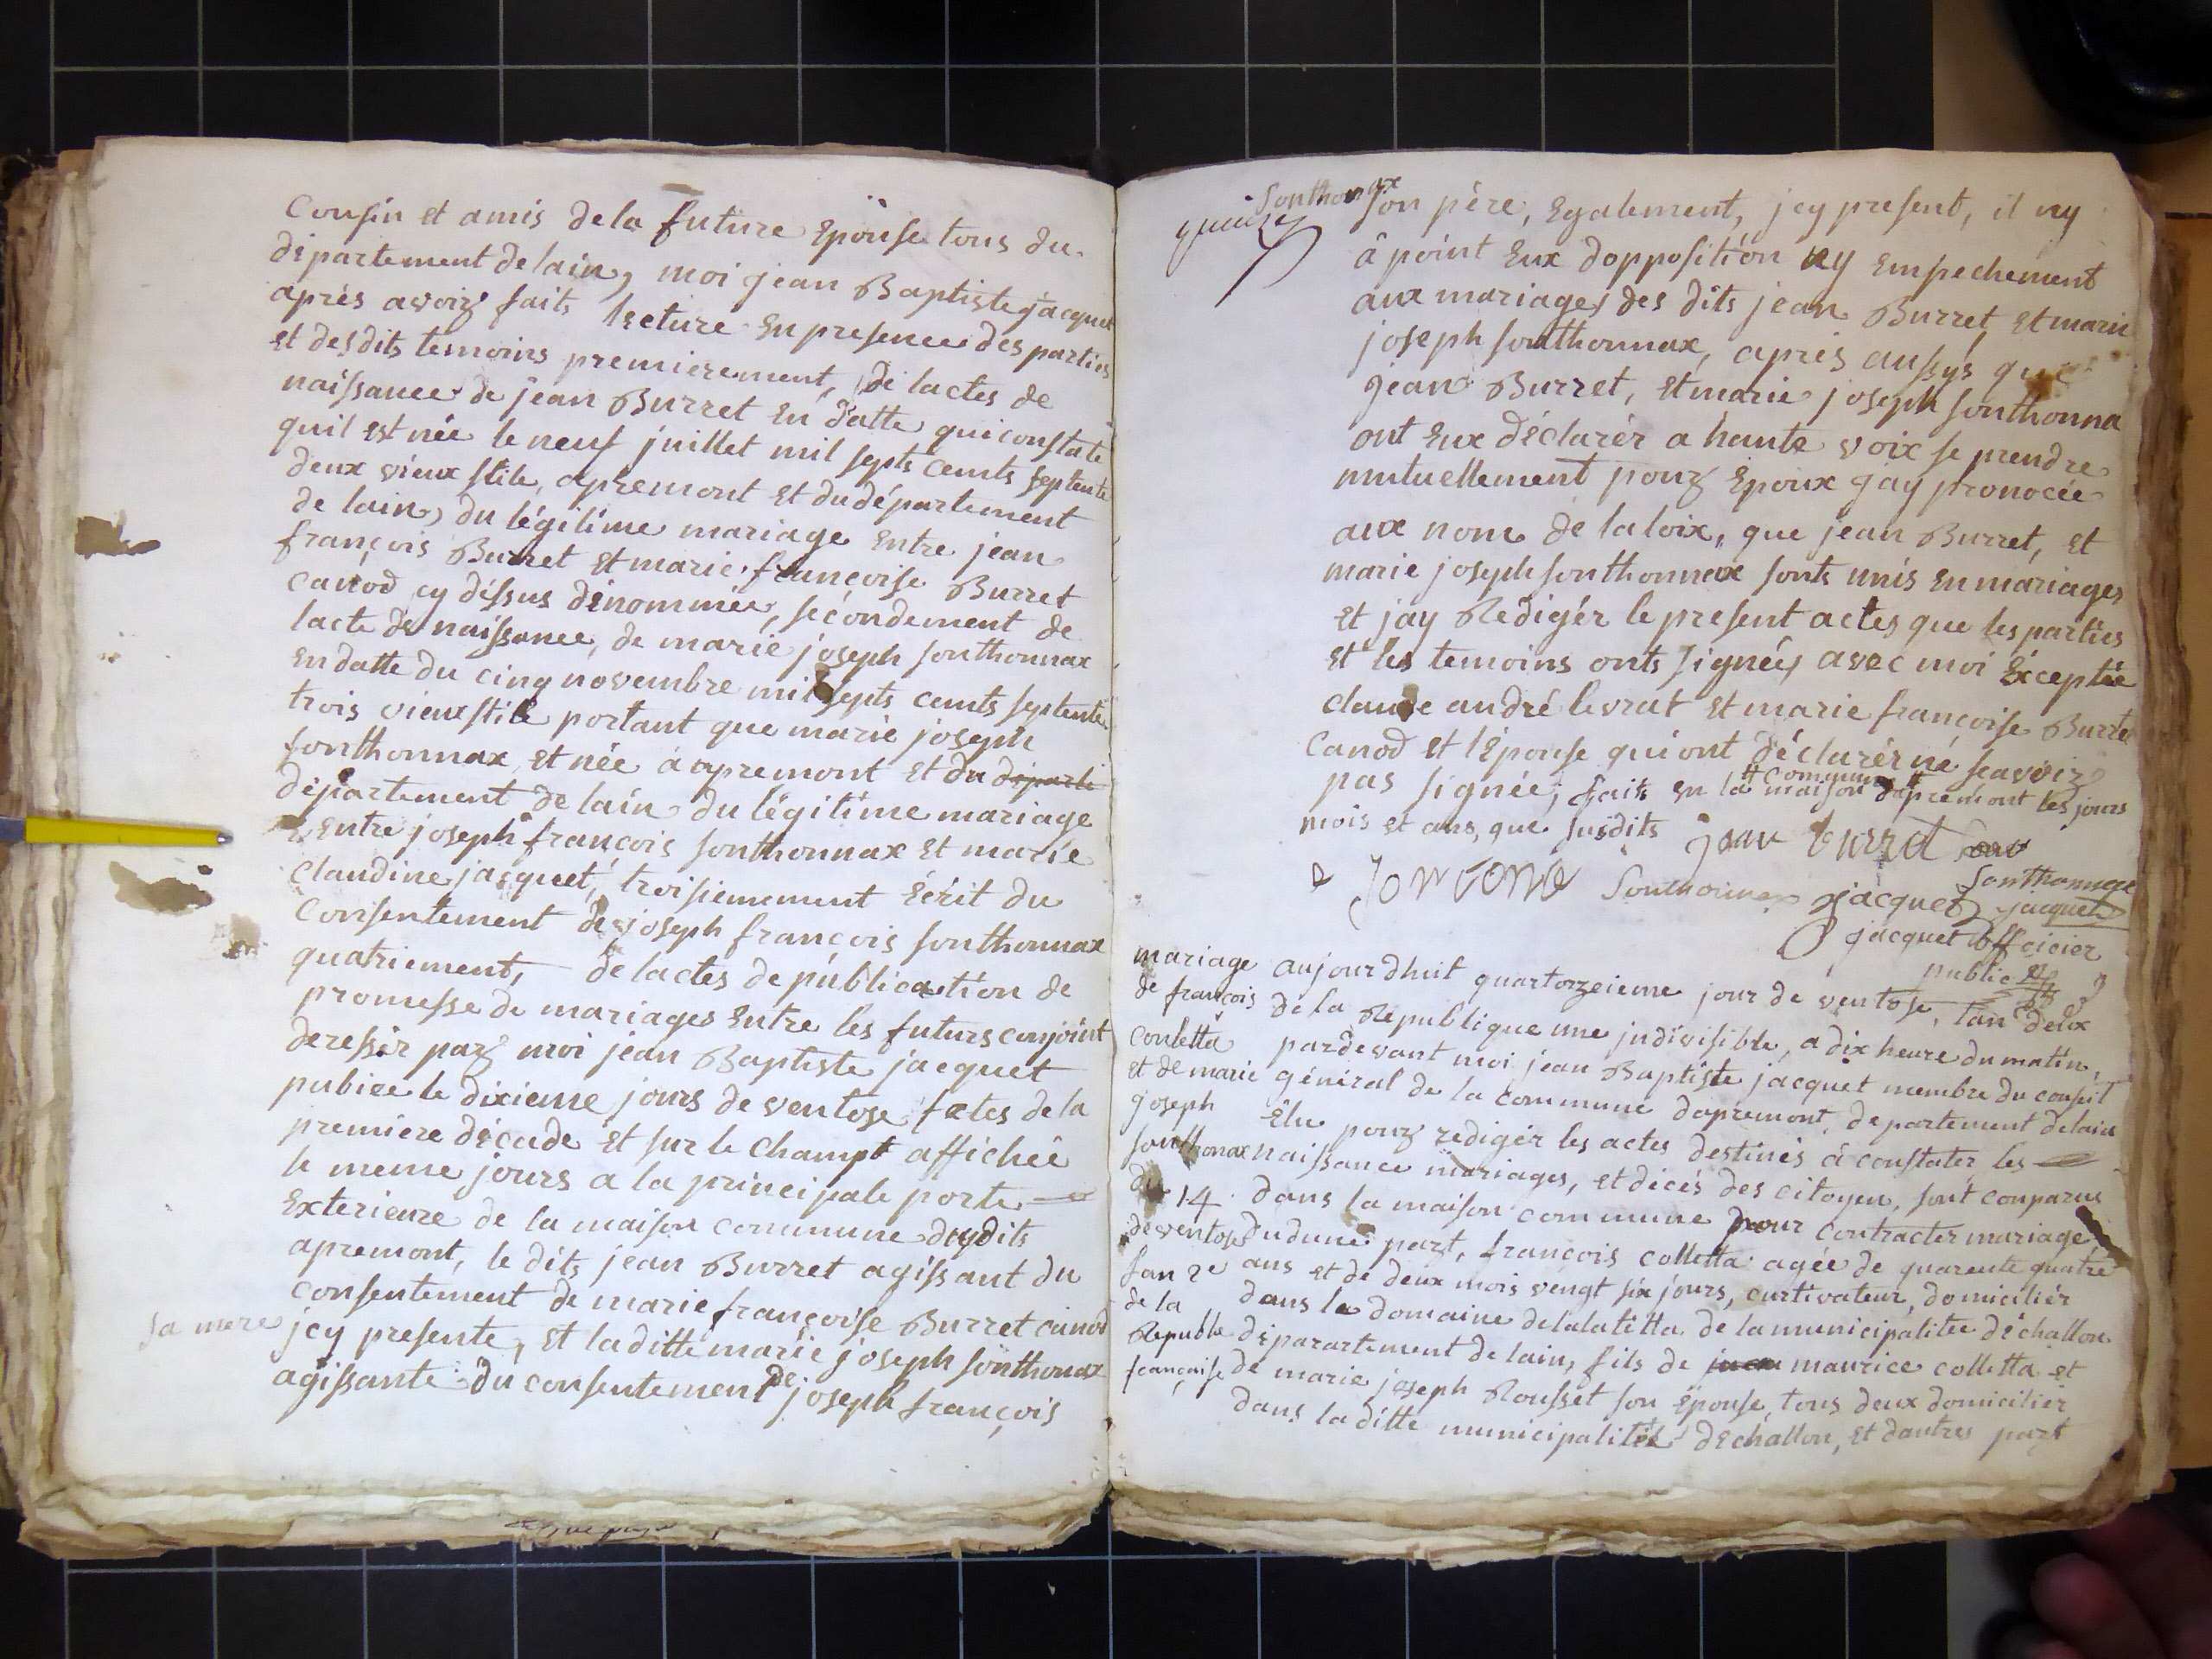 Consin et amis de la future Epouse tous du
département de lain, moi jean Baptiste jacquet
après avoir faits lecture en presence des parties
et desdits temoins premierement, de lactes de
naissance de jean Burret en datte qui constate
quil est née le neuf juillet mil septs cents septente
deux vieux stile, apremont et du département
de lain, du légitime mariage entre jean
françois Burret et marie françoise Burret
canod cy déssus dénommée, secondement de
lacte de naissance, de marie joseph sonthonnax
en datte du cinq novembre mil septs cents septente
trois vieux stile portant que marie joseph
sonthonnax et née à apremont et du départe
département de lain du légitime mariage
entre joseph françois sonthonnax et marie
claudine jacquet, troisiemement Ecrit du
consentement de joseph françois sonthonnax
quatriement, de lactes de publication de
promesse de mariages entre les futurs conjoint
deressir par moi jean Baptiste jacquet
pubiee le dixieme jours de ventose fates de la
premiere décade et sur le champt affichée
le meme jours a la principale porte
Exterieure de la maison commune dudits
apremont, le dits jean Burret agissant du
consentement de marie françoise Burret canod
sa mere jcy presente, et laditte marie joseph sonthonax
agissante du consentement de joseph françois
Sonthonax son père, Egalement, jcy present, il ny
à point Eux dopposition ny Empechement
aux mariages des dits jean Burret et marie
joseph sonthonnax, après aussÿs que
jean Burret, et marie joseph sonthonna
ont Eux déclarér a haute voix se prendre
mutuellement pour Epoux jay pronocée
aux nom de la loix, que jean Burret, et
marie joseph sonthonnax sonts unis en mariages
et jay Redigér le present actes que les parties
et les temoins onts signées avec moi Exceptée
claude andré levrat et marie françoise Burret
canod et lEpouse qui ont déclarér né scavoir
pas signée, faits en la maison commune dapremont les jours
mois et ans, que susdits jean burret
Sonthonnax jacquet Sonthonnax
jacquet
jacquet officier
public
mariage
de françois
couletta
et de marie
joseph
sonthonax
du 14
de ventose
lan 2e
de la
Republe
françaises
aujourdhuit quartorzeieme jour de ventose, lan deux
de la Republique une jndivisible, a dix heure du matin,
pardevant moi jean Baptiste jacquet membre du conseil
général de la commune dapremont, departement delain
Elu pour redigér les actes destinés à constater les
naissance mariages, et décés des citoyen, sont conparus
dans la maison commune pour contracter mariage
dudune part, françois colletta agée de quarente quatre
ans et de deux mois vengt six jours, curtivateur, domiciliér
dans le domaine delalatitta de la municipalitée déchallon
déparartement de lain, fils de jean maurice colletta et
de marie joseph Rousset son épouse, tous deux domicilier
dans laditte municipalité dechallon, et dautres part